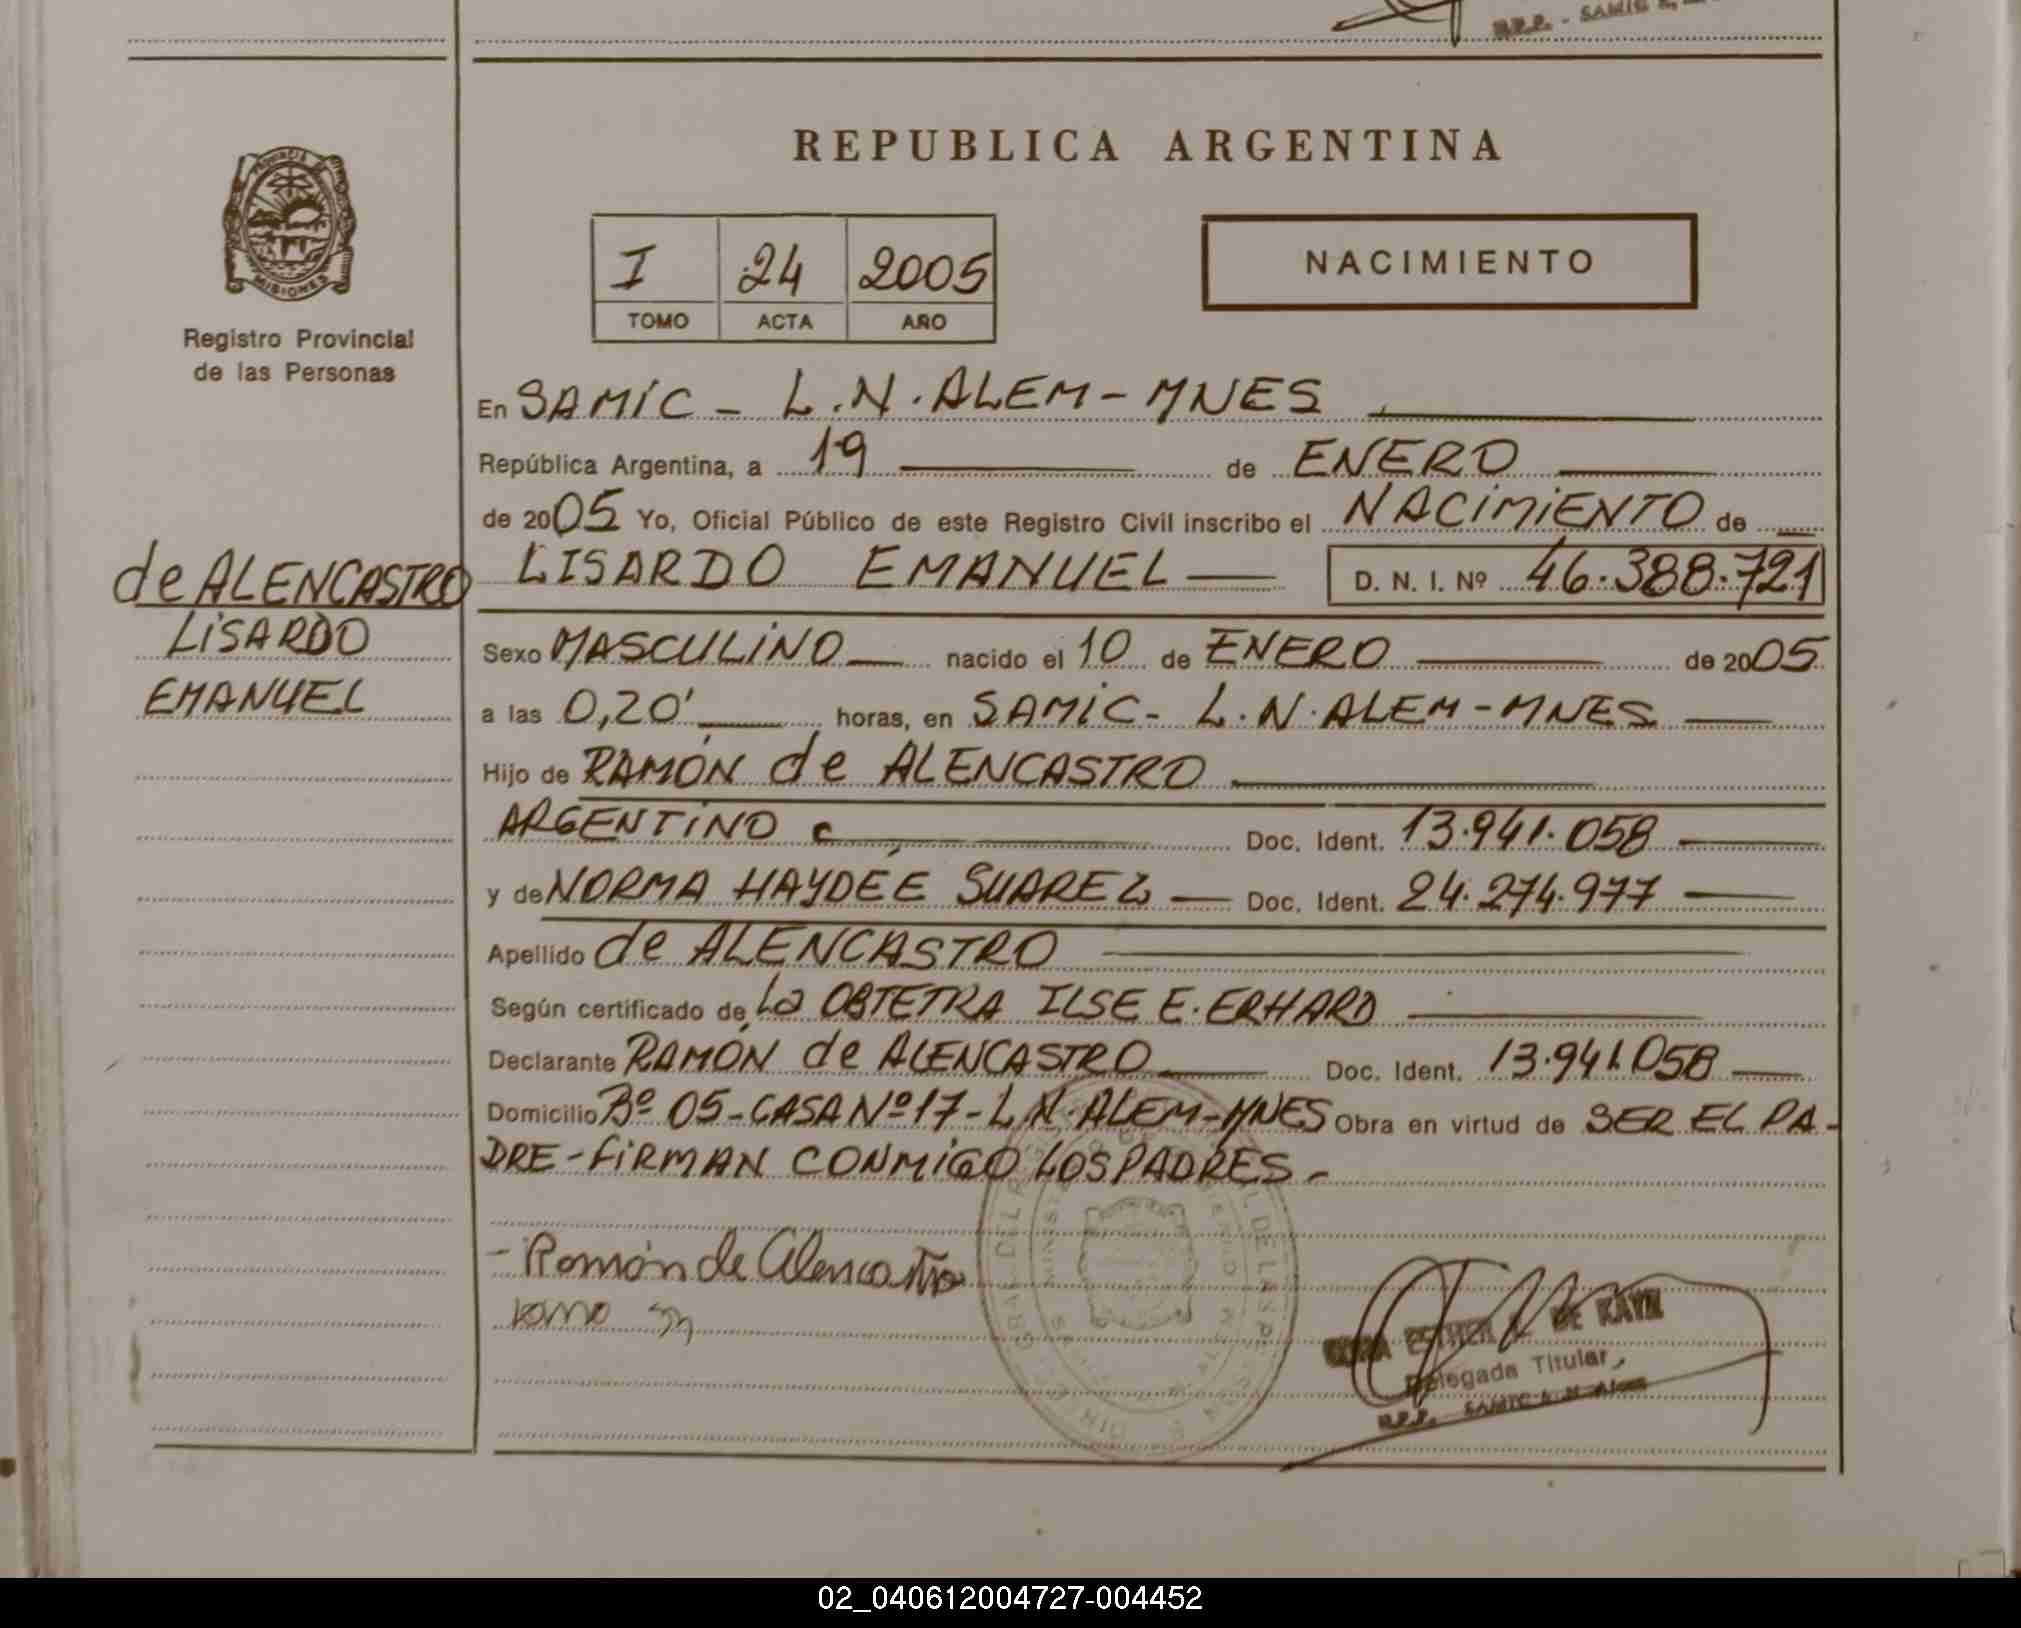 R.P.P. - SAMIC
REPUBLICA ARGENTINA
MISIONES
Registro Provincial
de las Personas
I 24 2005
TOMO ACTA AÑO
NACIMIENTO
En SAMIC - L.N. ALEM - MNES
República Argentina, a 19 de ENERO
de 2005 Yo, Oficial Público de este Registro Civil inscribo el NACIMIENTO de
de ALENCASTRO
LISARDO
EMANUEL
LISARDO EMANUEL D. N. I. Nº 46.388.721
Sexo MASCULINO nacido el 10 de ENERO de 2005
a las 0,20' horas, en SAMIC - L.N. ALEM - MNES
Hijo de RAMÓN de ALENCASTRO
ARGENTINO Doc. Ident. 13.941.058
y de NORMA HAYDÉE SUAREZ Doc. Ident. 24.274.977
Apellido de ALENCASTRO
Según certificado de La OBTETRA ILSE E. ERHARD
Declarante RAMÓN de ALENCASTRO Doc. Ident. 13.941.058
Domicilio Bº 05 - CASA Nº 17 - L.N. ALEM - MNES Obra en virtud de SER EL PA-
DRE - FIRMAN CONMIGO LOS PADRES.-
- Ramón de Alencastro
ESTHER DE KAYM
Delegada Titular
R.P.P. SAMIC L.N. Alem
02_040612004727-004452